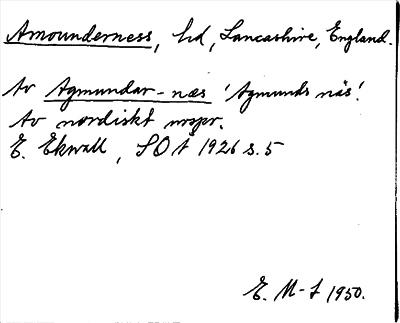 Amounderness, hd, Lancashire, England.
Av Agmundar-næs 'Agmunds näs'.
Av nordiskt urspr.
E. Ekwall, SOÅ 1926 s. 5
E. M-L 1950.